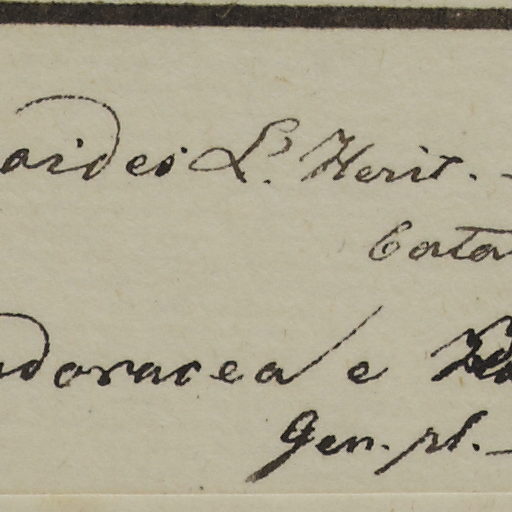 oides L'. Herit. -
Cata
doracea e
Gen. pl. -